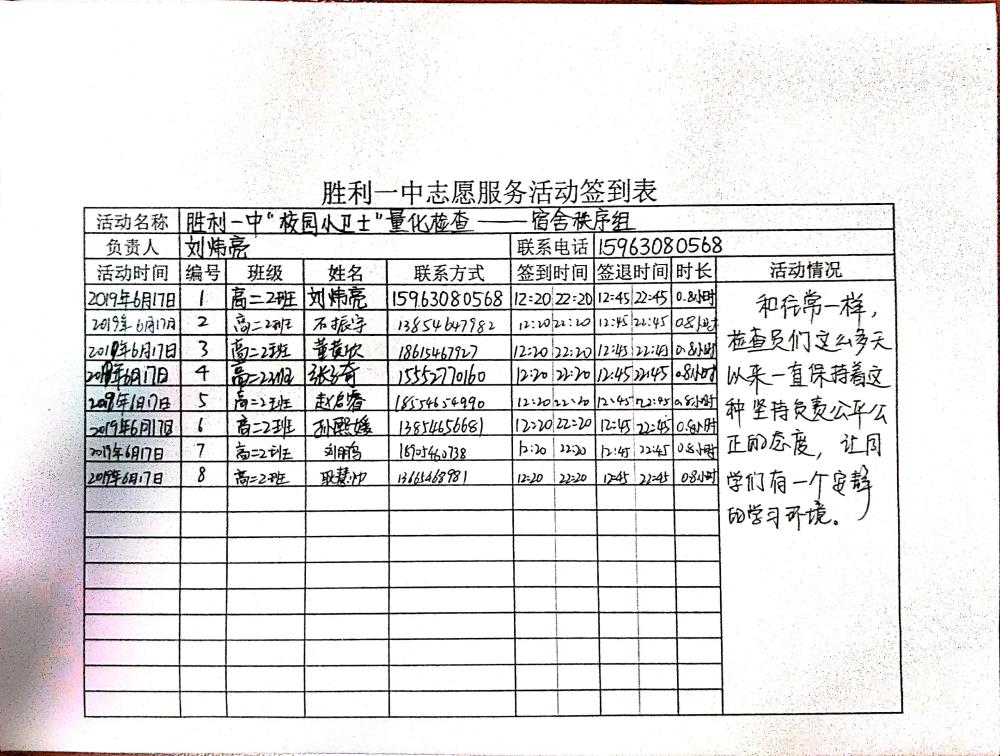 胜利一中志愿服务活动签到表
活动名称 胜利一中"校园小卫士"量化检查——宿舍秩序组
负责人 刘炜亮 联系电话 15963080568
活动时间 编号 班级 姓名 联系方式 签到时间 签退时间 时长 活动情况
2019年6月17日 1 高二2班 刘炜亮 15963080568 12:20 22:20 12:45 22:45 0.8小时
2019年6月17日 2 高二2班 石振宇 13854647982 12:20 22:20 12:45 22:45 0.8小时
2019年6月17日 3 高二2班 18615467927 12:20 22:20 12:45 22:45 0.8小时
2019年6月17日 4 高二2班 15552770160 12:20 22:20 12:45 22:45 0.8小时
2019年6月17日 5 高二2班 18554654990 12:20 22:20 12:45 22:45 0.8小时
2019年6月17日 6 高二2班 孙熙媛 13854656681 12:20 22:20 12:45 22:45 0.8小时
2019年6月17日 7 高二2班 12:20 22:20 12:45 22:45 0.8小时
2019年6月17日 8 高二2班 12:20 22:20 12:45 22:45 0.8小时
和往常一样，
检查员们这么多天
以来一直保持着这
种坚持负责公平公
正的态度，让同
学们有一个安静
的学习环境。